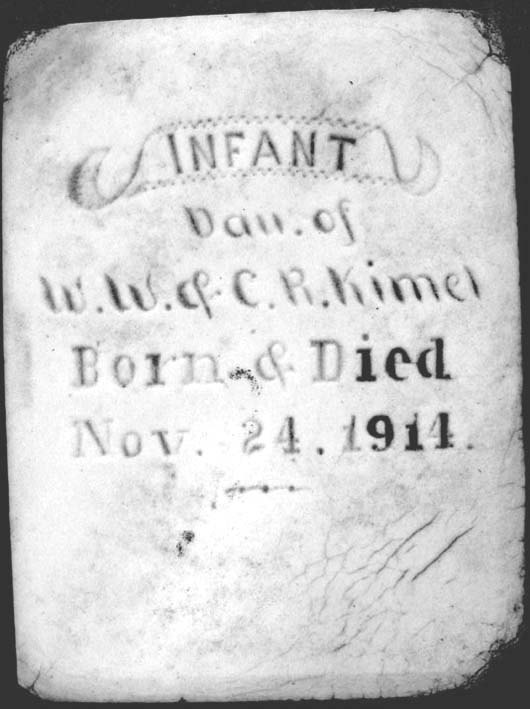 INFANT
Dau. of
W. W. & C. R. Kimel
Born & Died
Nov. 24. 1914.